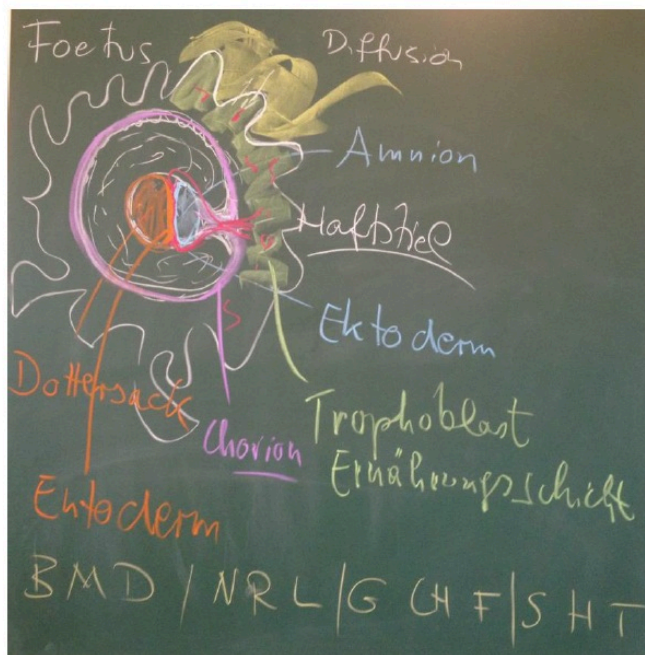 Foetus
Diffusion
Amnion
Haftstiel
Ektoderm
Dottersack
Chorion
Trophoblast
Ernährungsschicht
Entoderm
BMD / NRL / G CH F / S H T